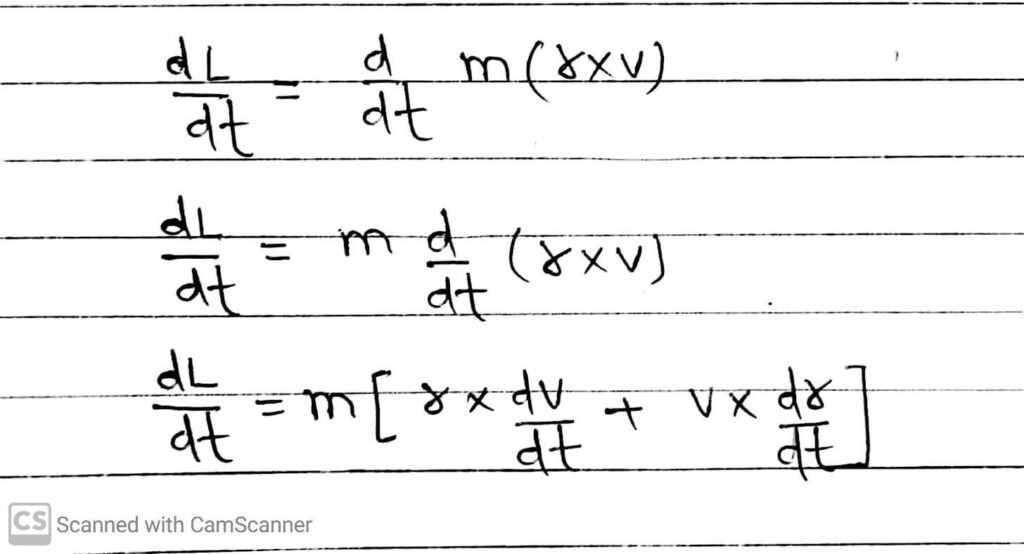 dL/dt = d/dt m(r×v)
dL/dt = m d/dt (r×v)
dL/dt = m[r × dv/dt + v × dr/dt]
CS Scanned with CamScanner